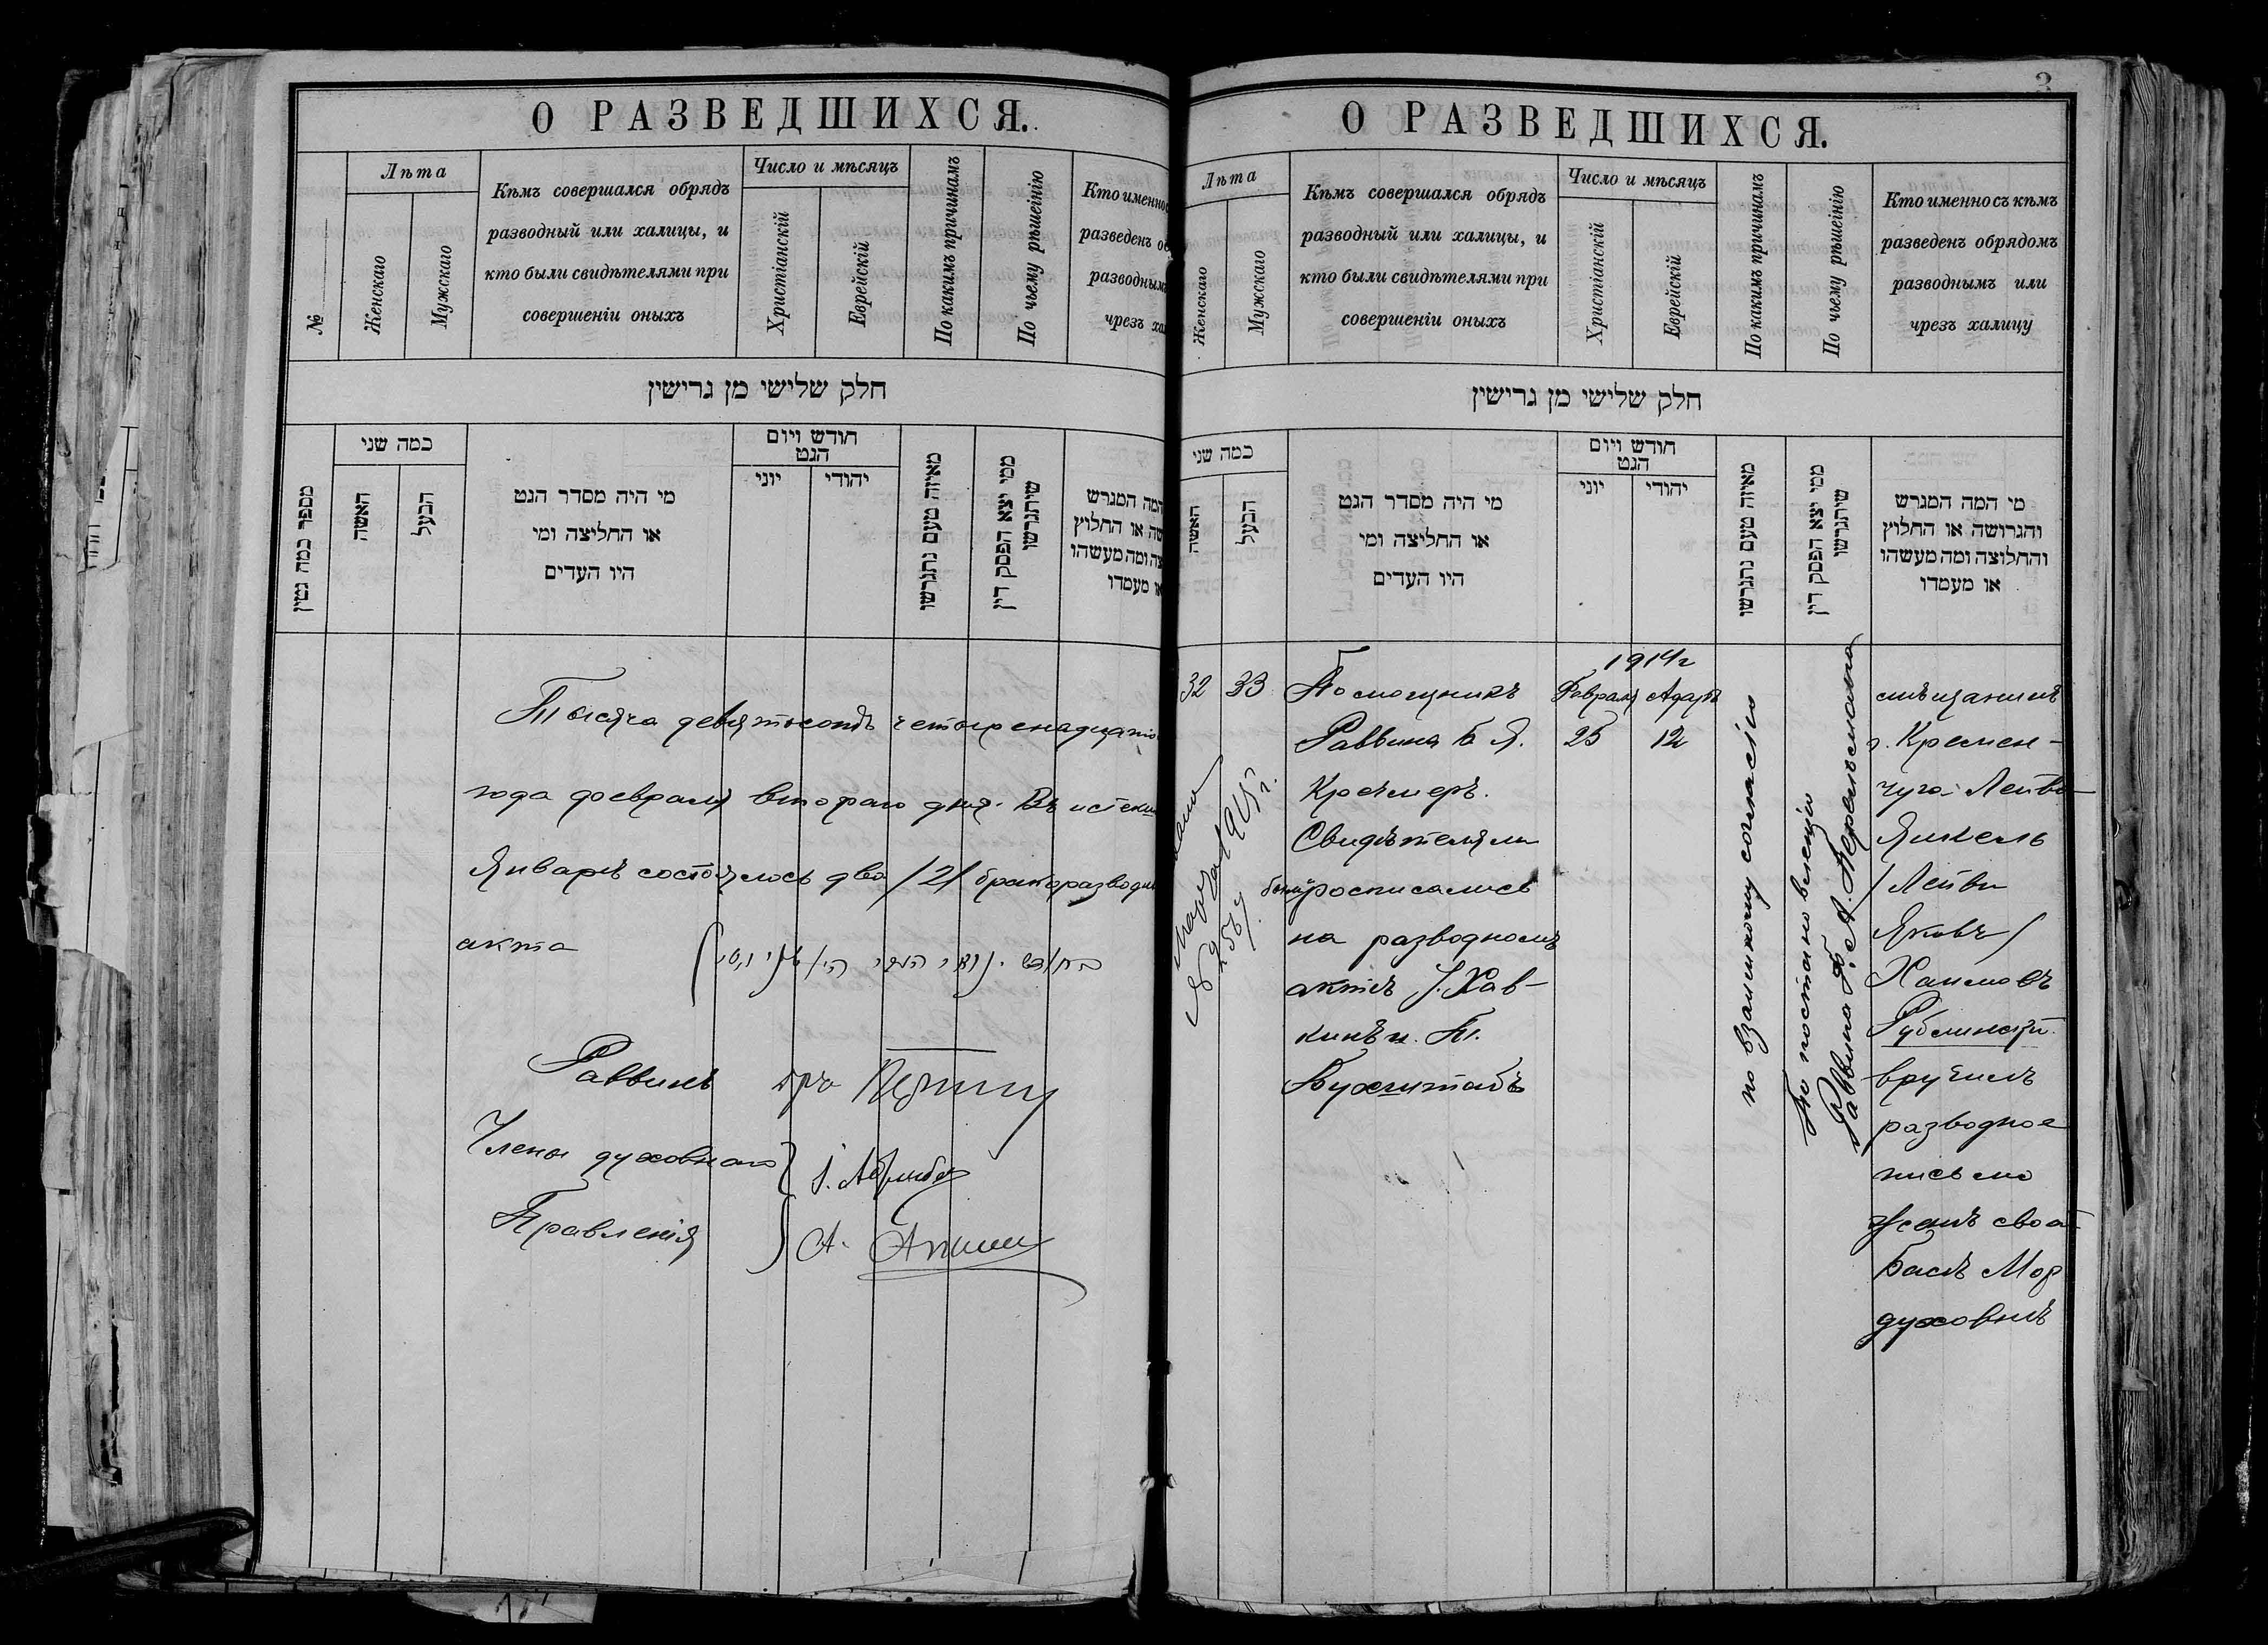 О РАЗВЕДШИХСЯ.
№
Лѣта
Женскаго
Мужскаго
Кѣмъ совершался обрядъ
разводный или халицы, и
кто были свидѣтелями при
совершеніи оныхъ
Число и мѣсяцъ
Христіанскій
Еврейскій
По какимъ причинамъ
По чьему рѣшенію
Кто именно с
разведенъ об
разводным
чрезъ ха
חלק שלישי מן גרישין
מספר כמה גטין
כמה שני
האשה
הבעל
מי היה מסדר הגט
או החליצה ומי
היו העדים
חודש ויום
הגט
יוני
יהודי
מאיזה טעם נתגרשו
ממי יצא הפסק דין
שיתגרשו
המה המגרש
שה או החלוץ
צה ומה מעשהו
או מעמדו
Тысяча девятьсотъ четыренадцато
года февраля второго дня. Въ истекш
Январѣ состоялось два /2/ бракоразводн
акта
Раввинъ
Члены духовнаго
Правленія
А.
3
О РАЗВЕДШИХСЯ.
Лѣта
Женскаго
Мужскаго
Кѣмъ совершался обрядъ
разводный или халицы, и
кто были свидѣтелями при
совершеніи оныхъ
Число и мѣсяцъ
Христіанскій
Еврейскій
По какимъ причинамъ
По чьему рѣшенію
Кто именно съ кѣмъ
разведенъ обрядомъ
разводнымъ или
чрезъ халицу
חלק שלישי מן גרישין
כמה שני
האשה
הבעל
מי היה מסדר הגט
או החליצה ומי
היו העדים
חודש ויום
הגט
יוני
יהודי
מאיזה טעם נתגרשו
ממי יצא הפסק דין
שיתגרשו
מי המה המגרש
והגרושה או החלוץ
והחלוצה ומה מעשהו
או מעמדו
32
33
Помощникъ
Раввина Б Я.
Кречмеръ.
Свидѣтелями
были росписались
на разводномъ
актѣ І. Хав-
кинъ и. П.
Бухштабъ
1914 г
Февраля Адаръ
25 12
по взаимному согласію
По постановленію
Раввина А. Перельмана
мѣщанинъ
г. Кремен-
чуга Лейба
Янкель
/Лейви
Яковъ/
Хаимовъ
Рублинскій
вручилъ
разводное
письмо
женѣ своей
Басѣ Мор
духовнѣ
1915 г.